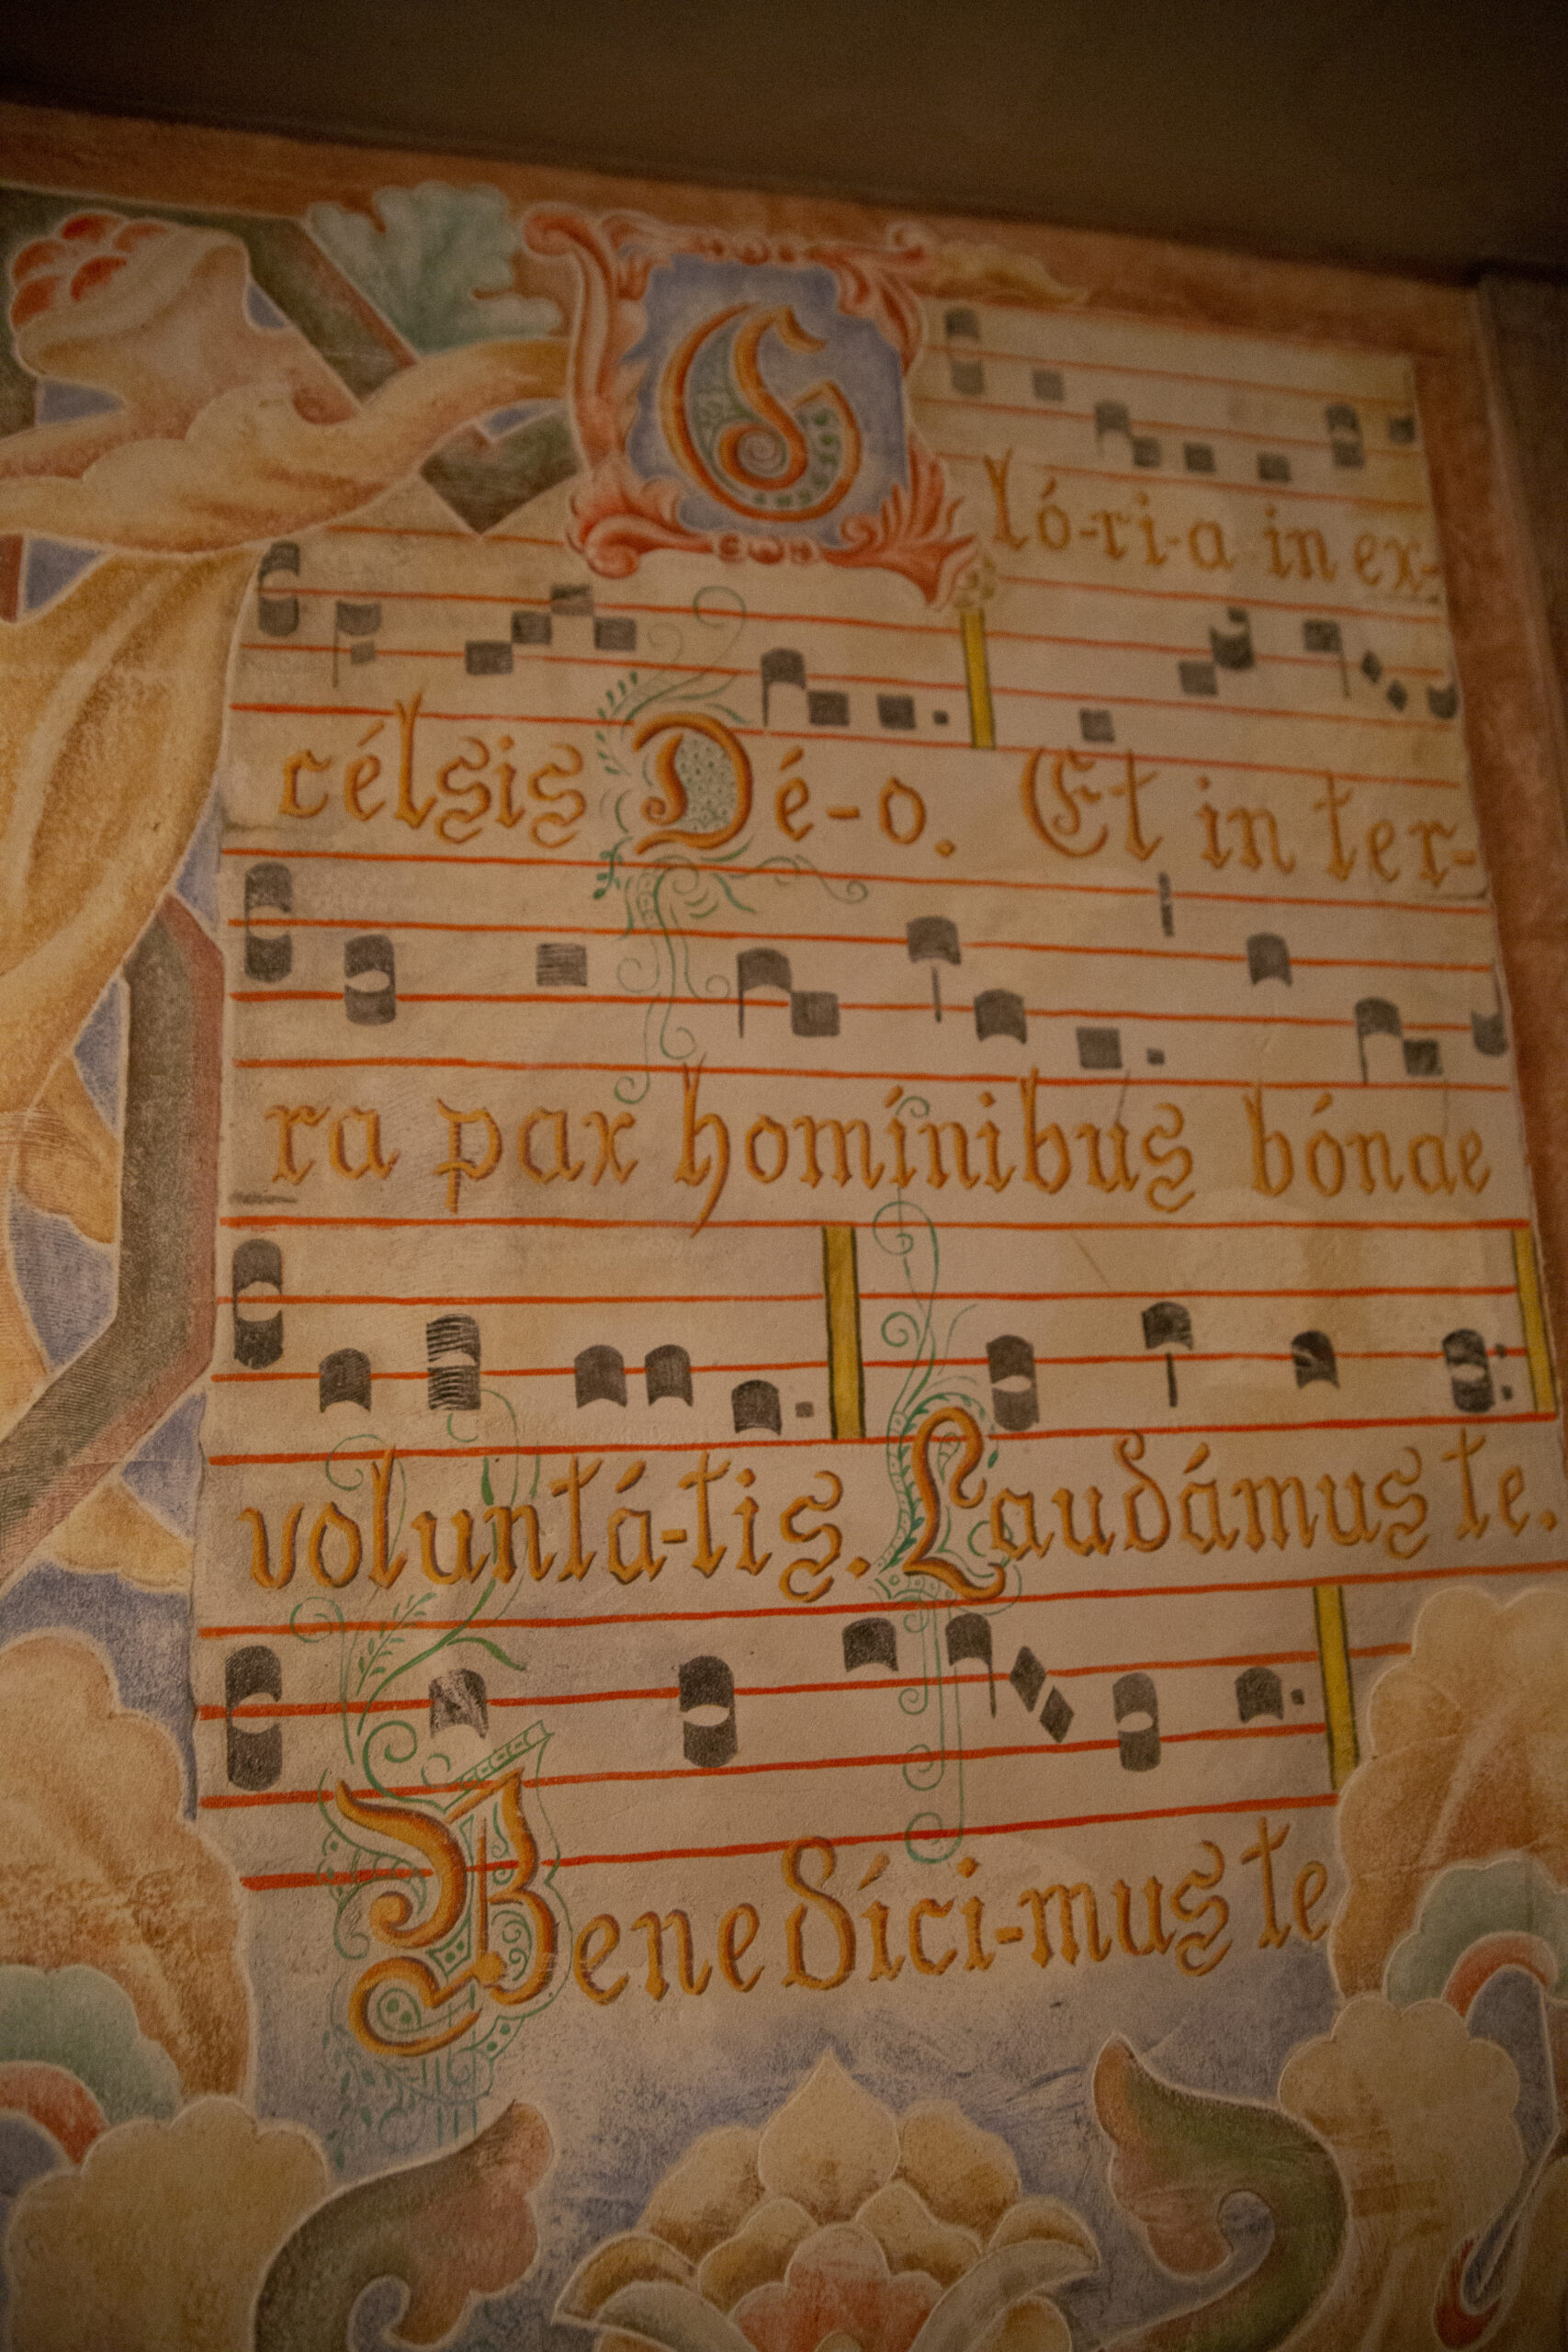 Gló-ri-a in ex-
célsis Dé-o. Et in ter-
ra pax homínibus bónae
voluntá-tis. Laudámus te.
Benedíci-mus te